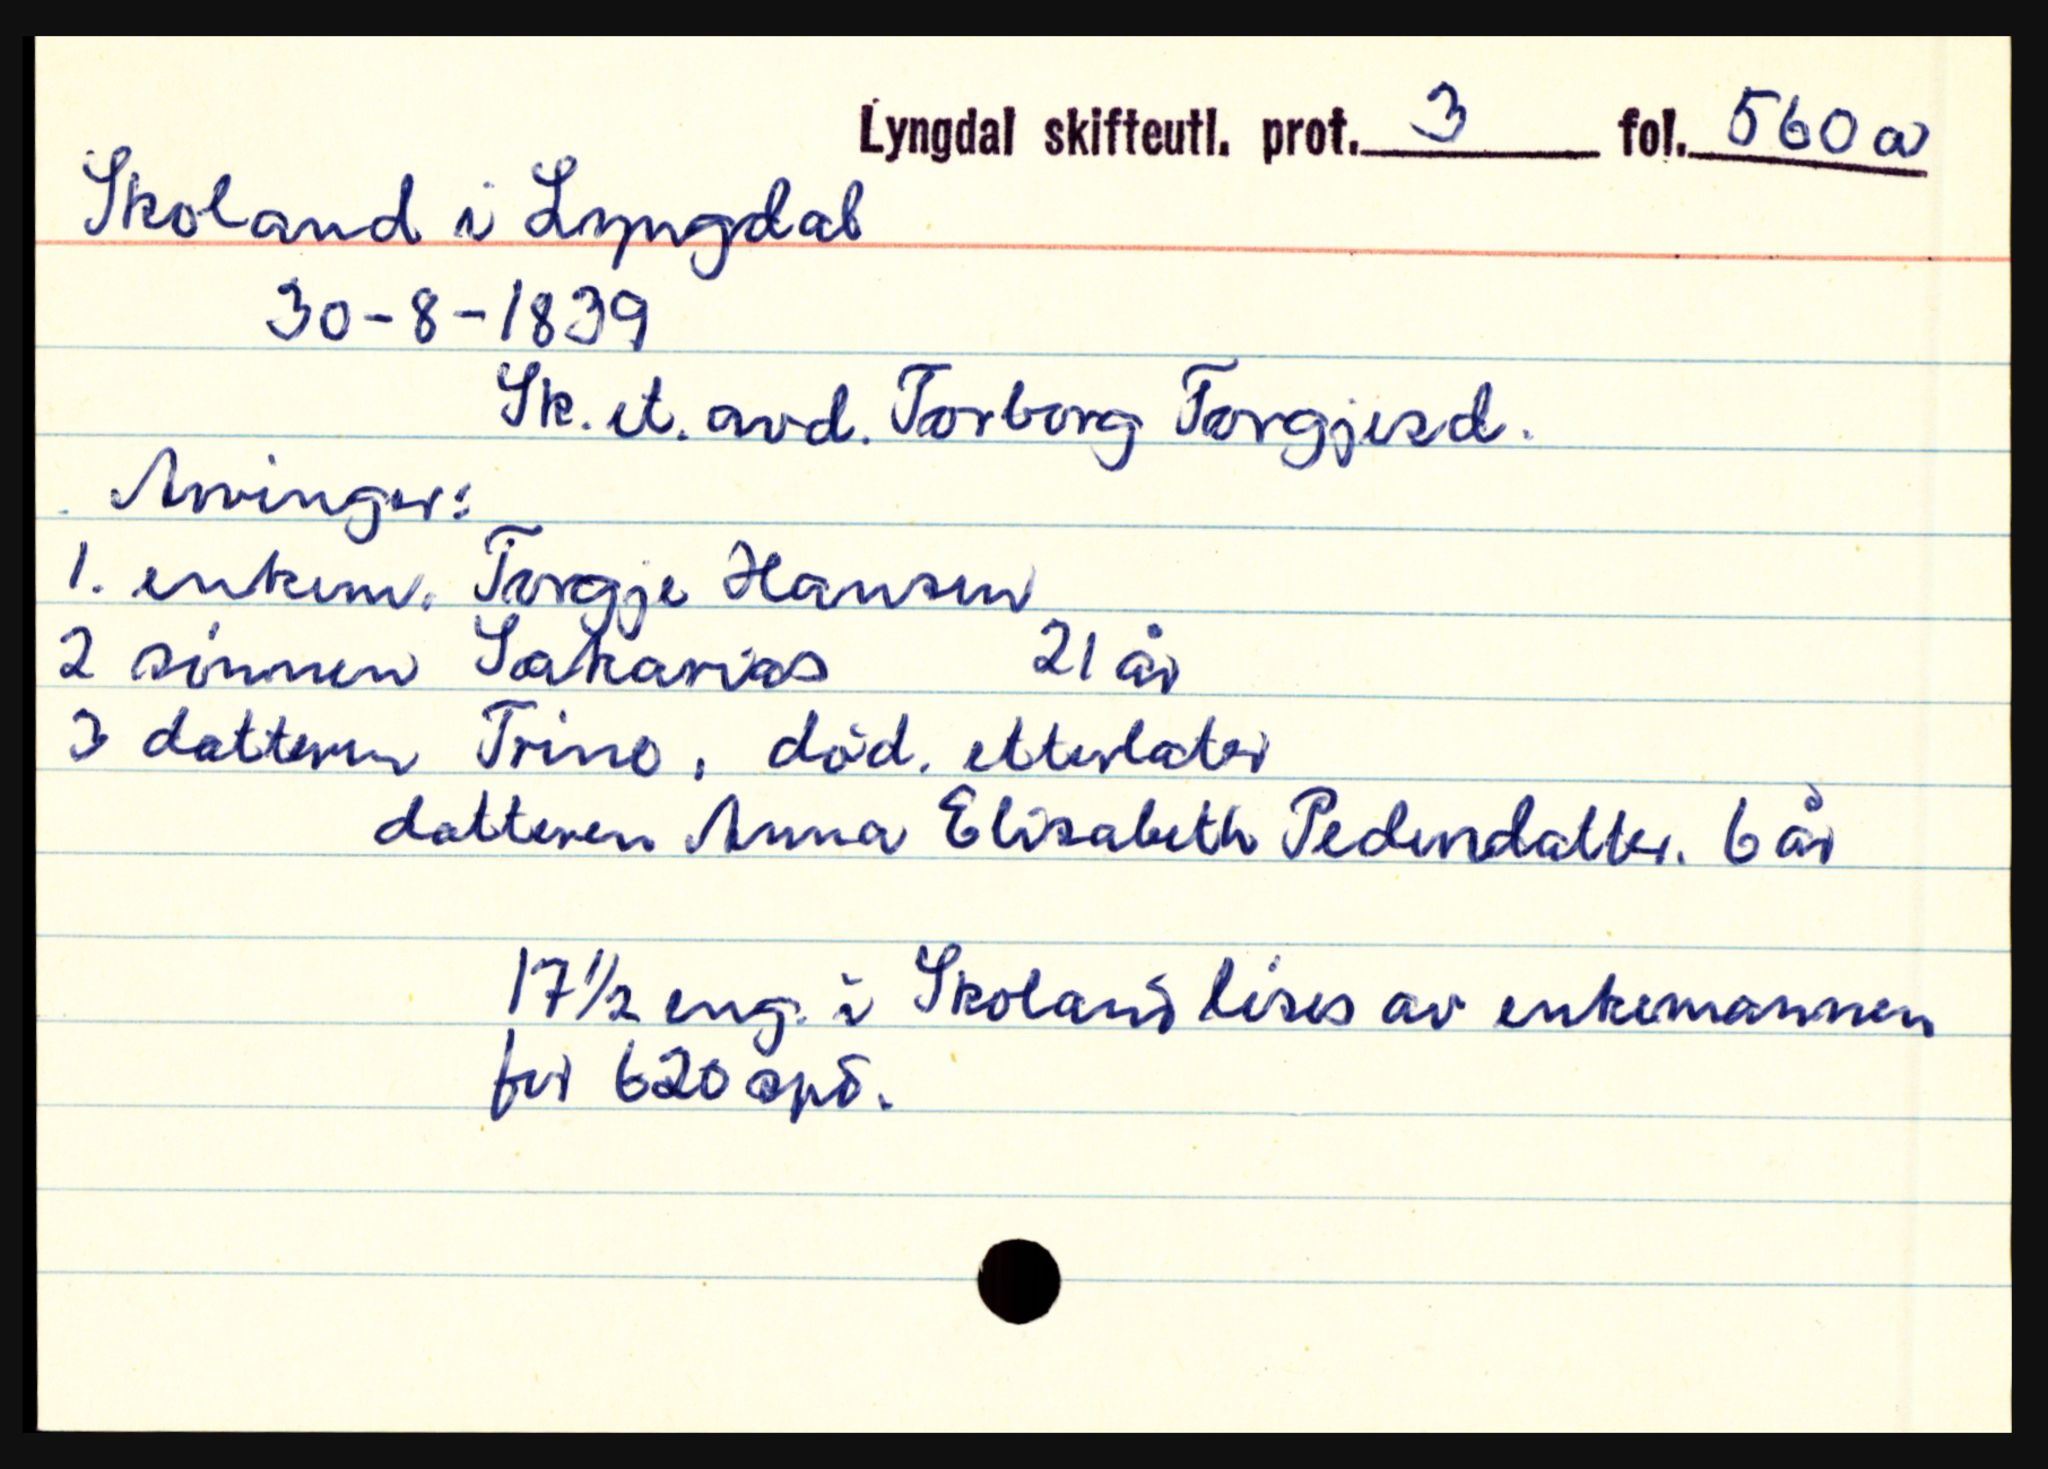 Lyngdal skifteutl. prot. 3 fol. 560 a
Skoland i Lyngdal
30-8-1839
Sk. et. avd. Torborg Torgjesd.
Arvinger:
1. enkem. Torgje Hansen
2 sønnen Sakarias 21 år
3 datteren Trine, død. etterlater
datteren Anna Elisabeth Pedersdatter. 6 år
17 1/2 eng. i Skoland løses av enkemannen
for 620 spd.